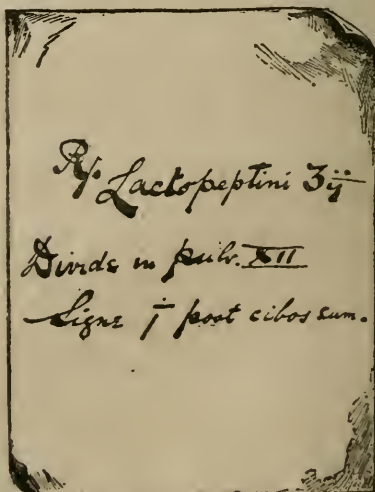 Rx. Lactopeptini ʒij
Divide in pulv. XII
Signe i post cibos sum.